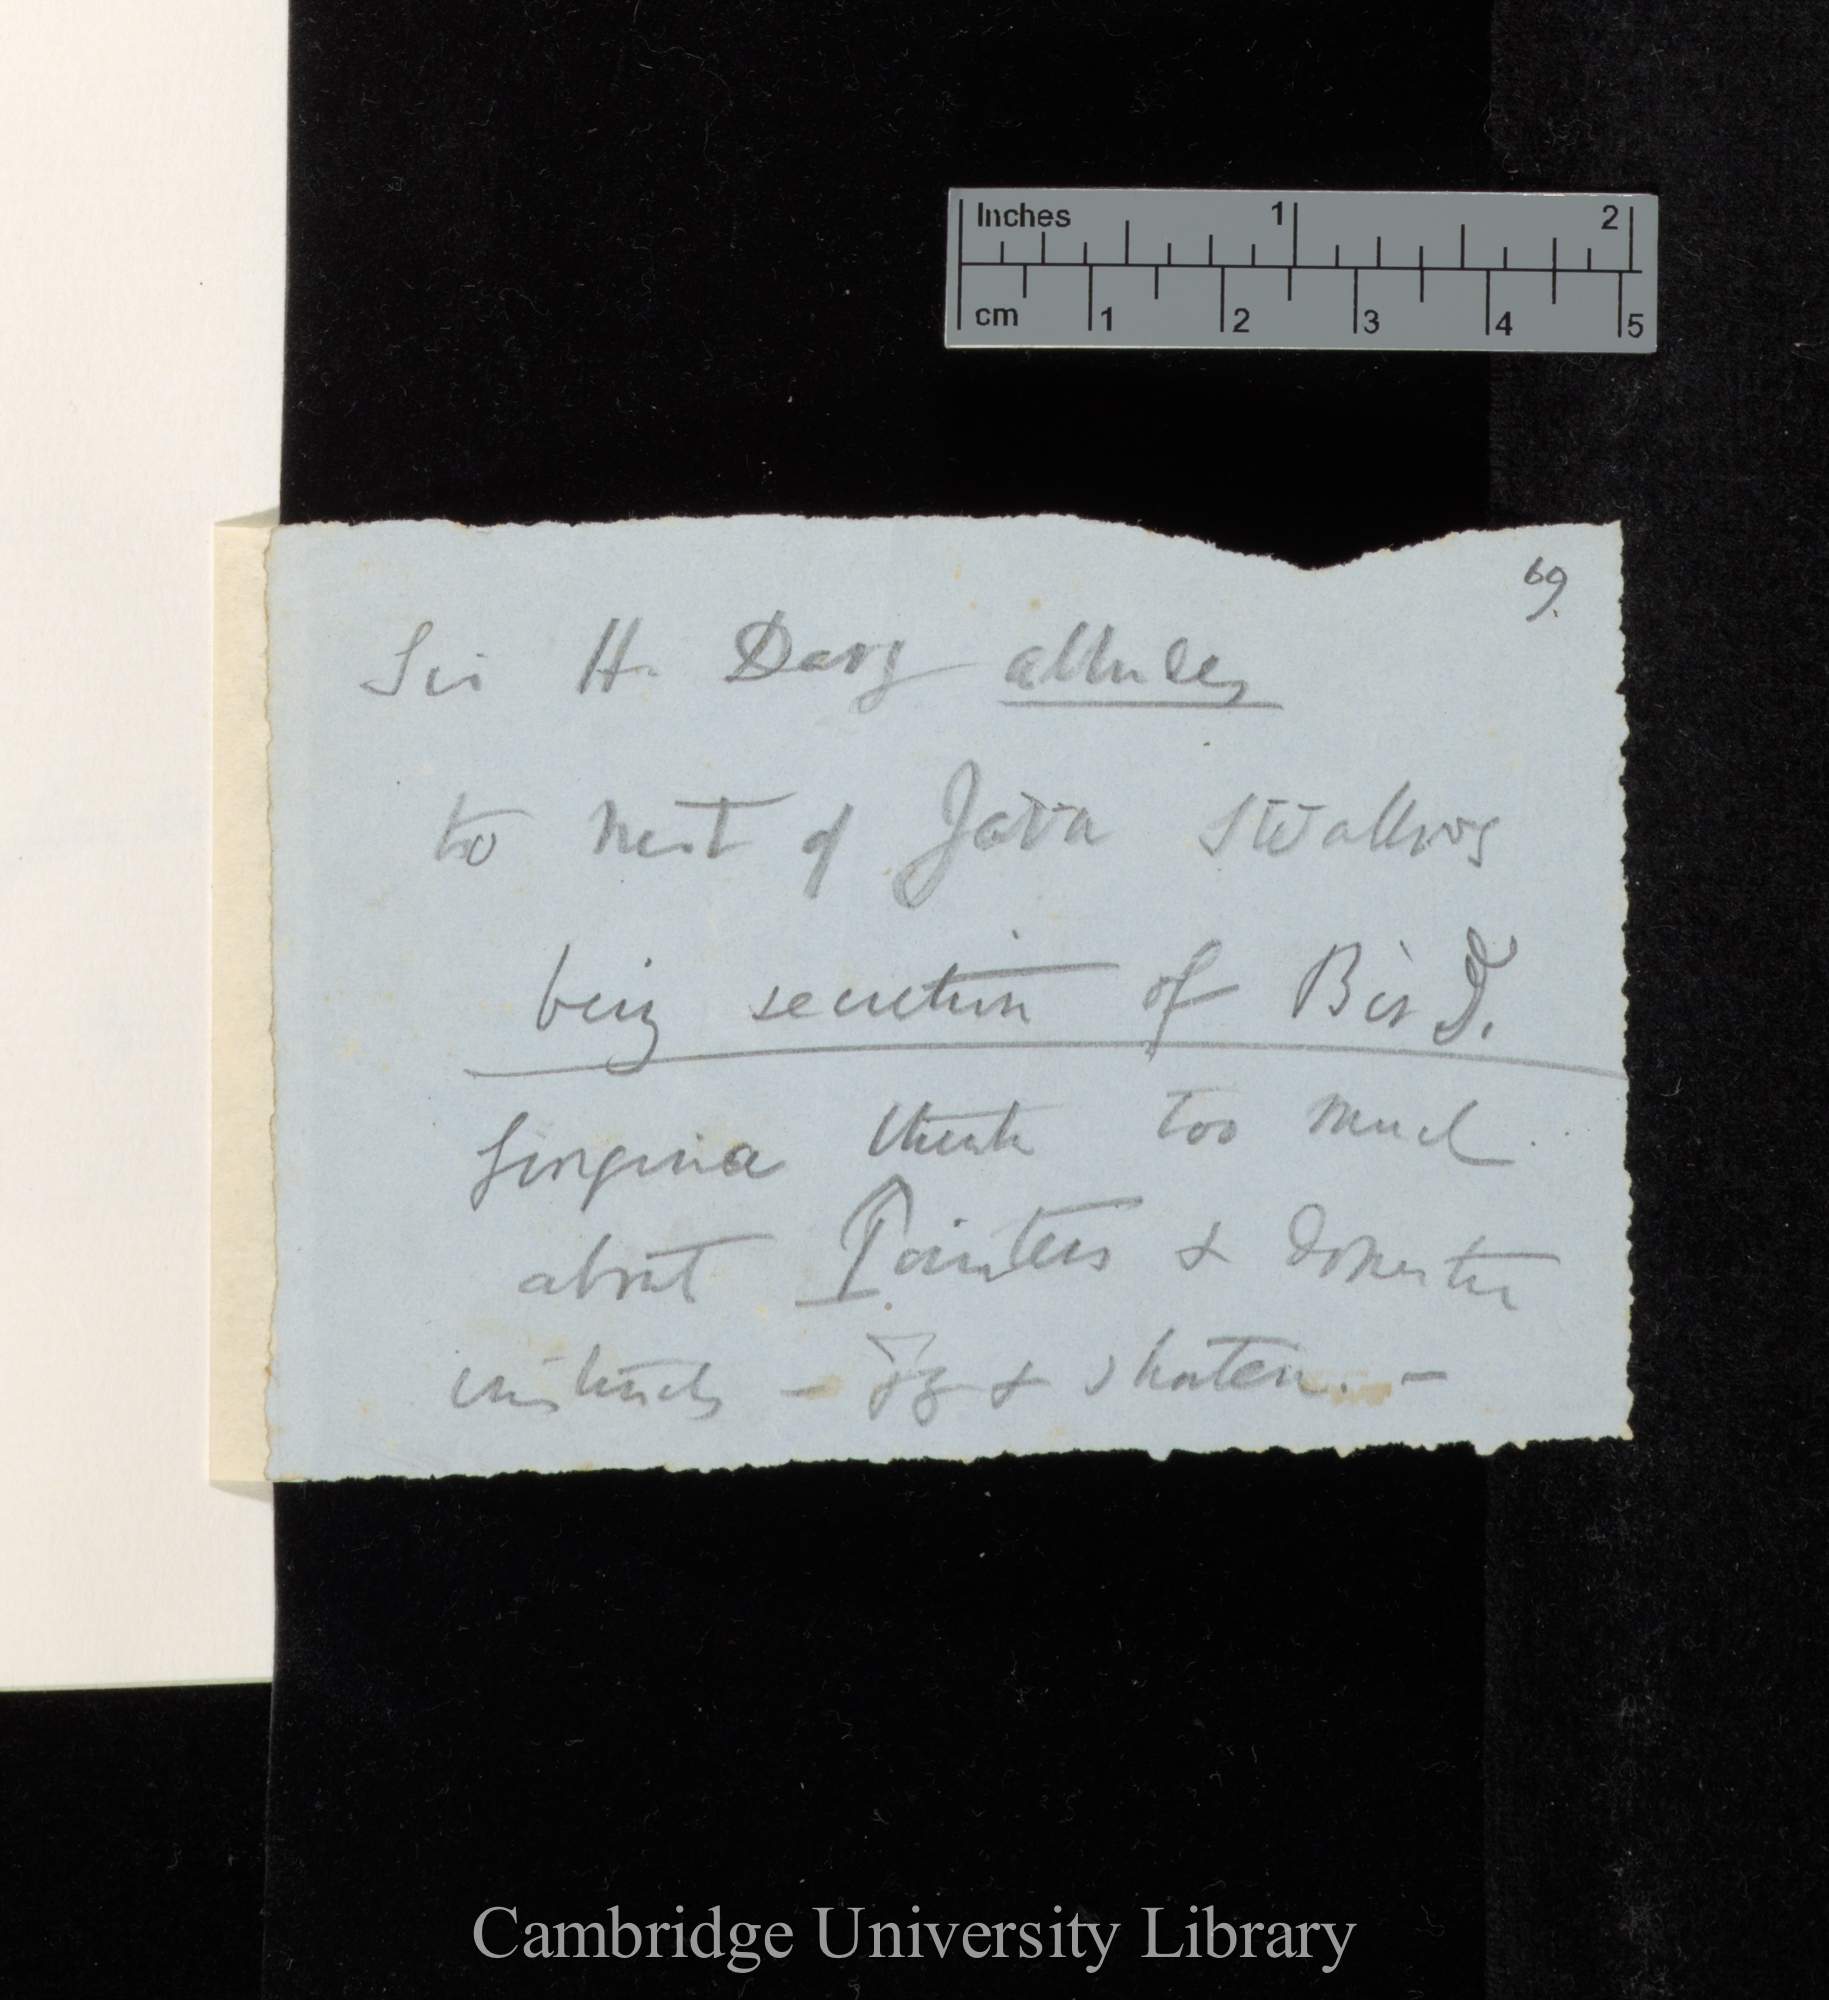 Inches 1 2
cm 1 2 3 4 5
69.
Sir H. Davy alludes
to nest of Java Swallows
being secretion of Bird.
think too much
about Pointers & domestic
instincts — & shorten. —
Cambridge University Library